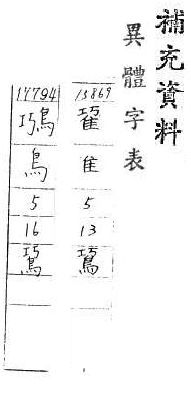 補充資料
異體字表
13869
隹
5
13
17794
鳥
5
16